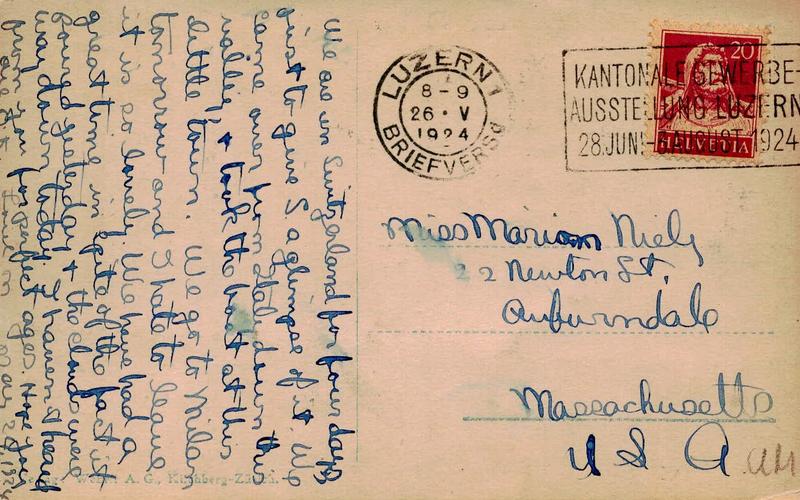 We are in Switzerland for four days
just to give S a glimpse of it. We
came over from Italy down this
valley, & took the boat at this
little town. We go to Milan
tomorrow and I hate to leave
it is so lovely. We have had a
great time in spite of the fact it
poured yesterday & the clouds were
way down today. I haven't heard
from you for perfect ages. Hope you
are fit. Love M
May 26 1924
LUZERN 1
8-9
26·V
1924
BRIEFVERSd
KANTONALE GEWERBE-
AUSSTELLUNG LUZERN
28.JUNI- AUGUST 1924
20
HELVETIA
Miss Mariam Niely
22 Newton St.
Auburndale
Massachusetts
U S A
A. G., Kilchberg-Zürich.